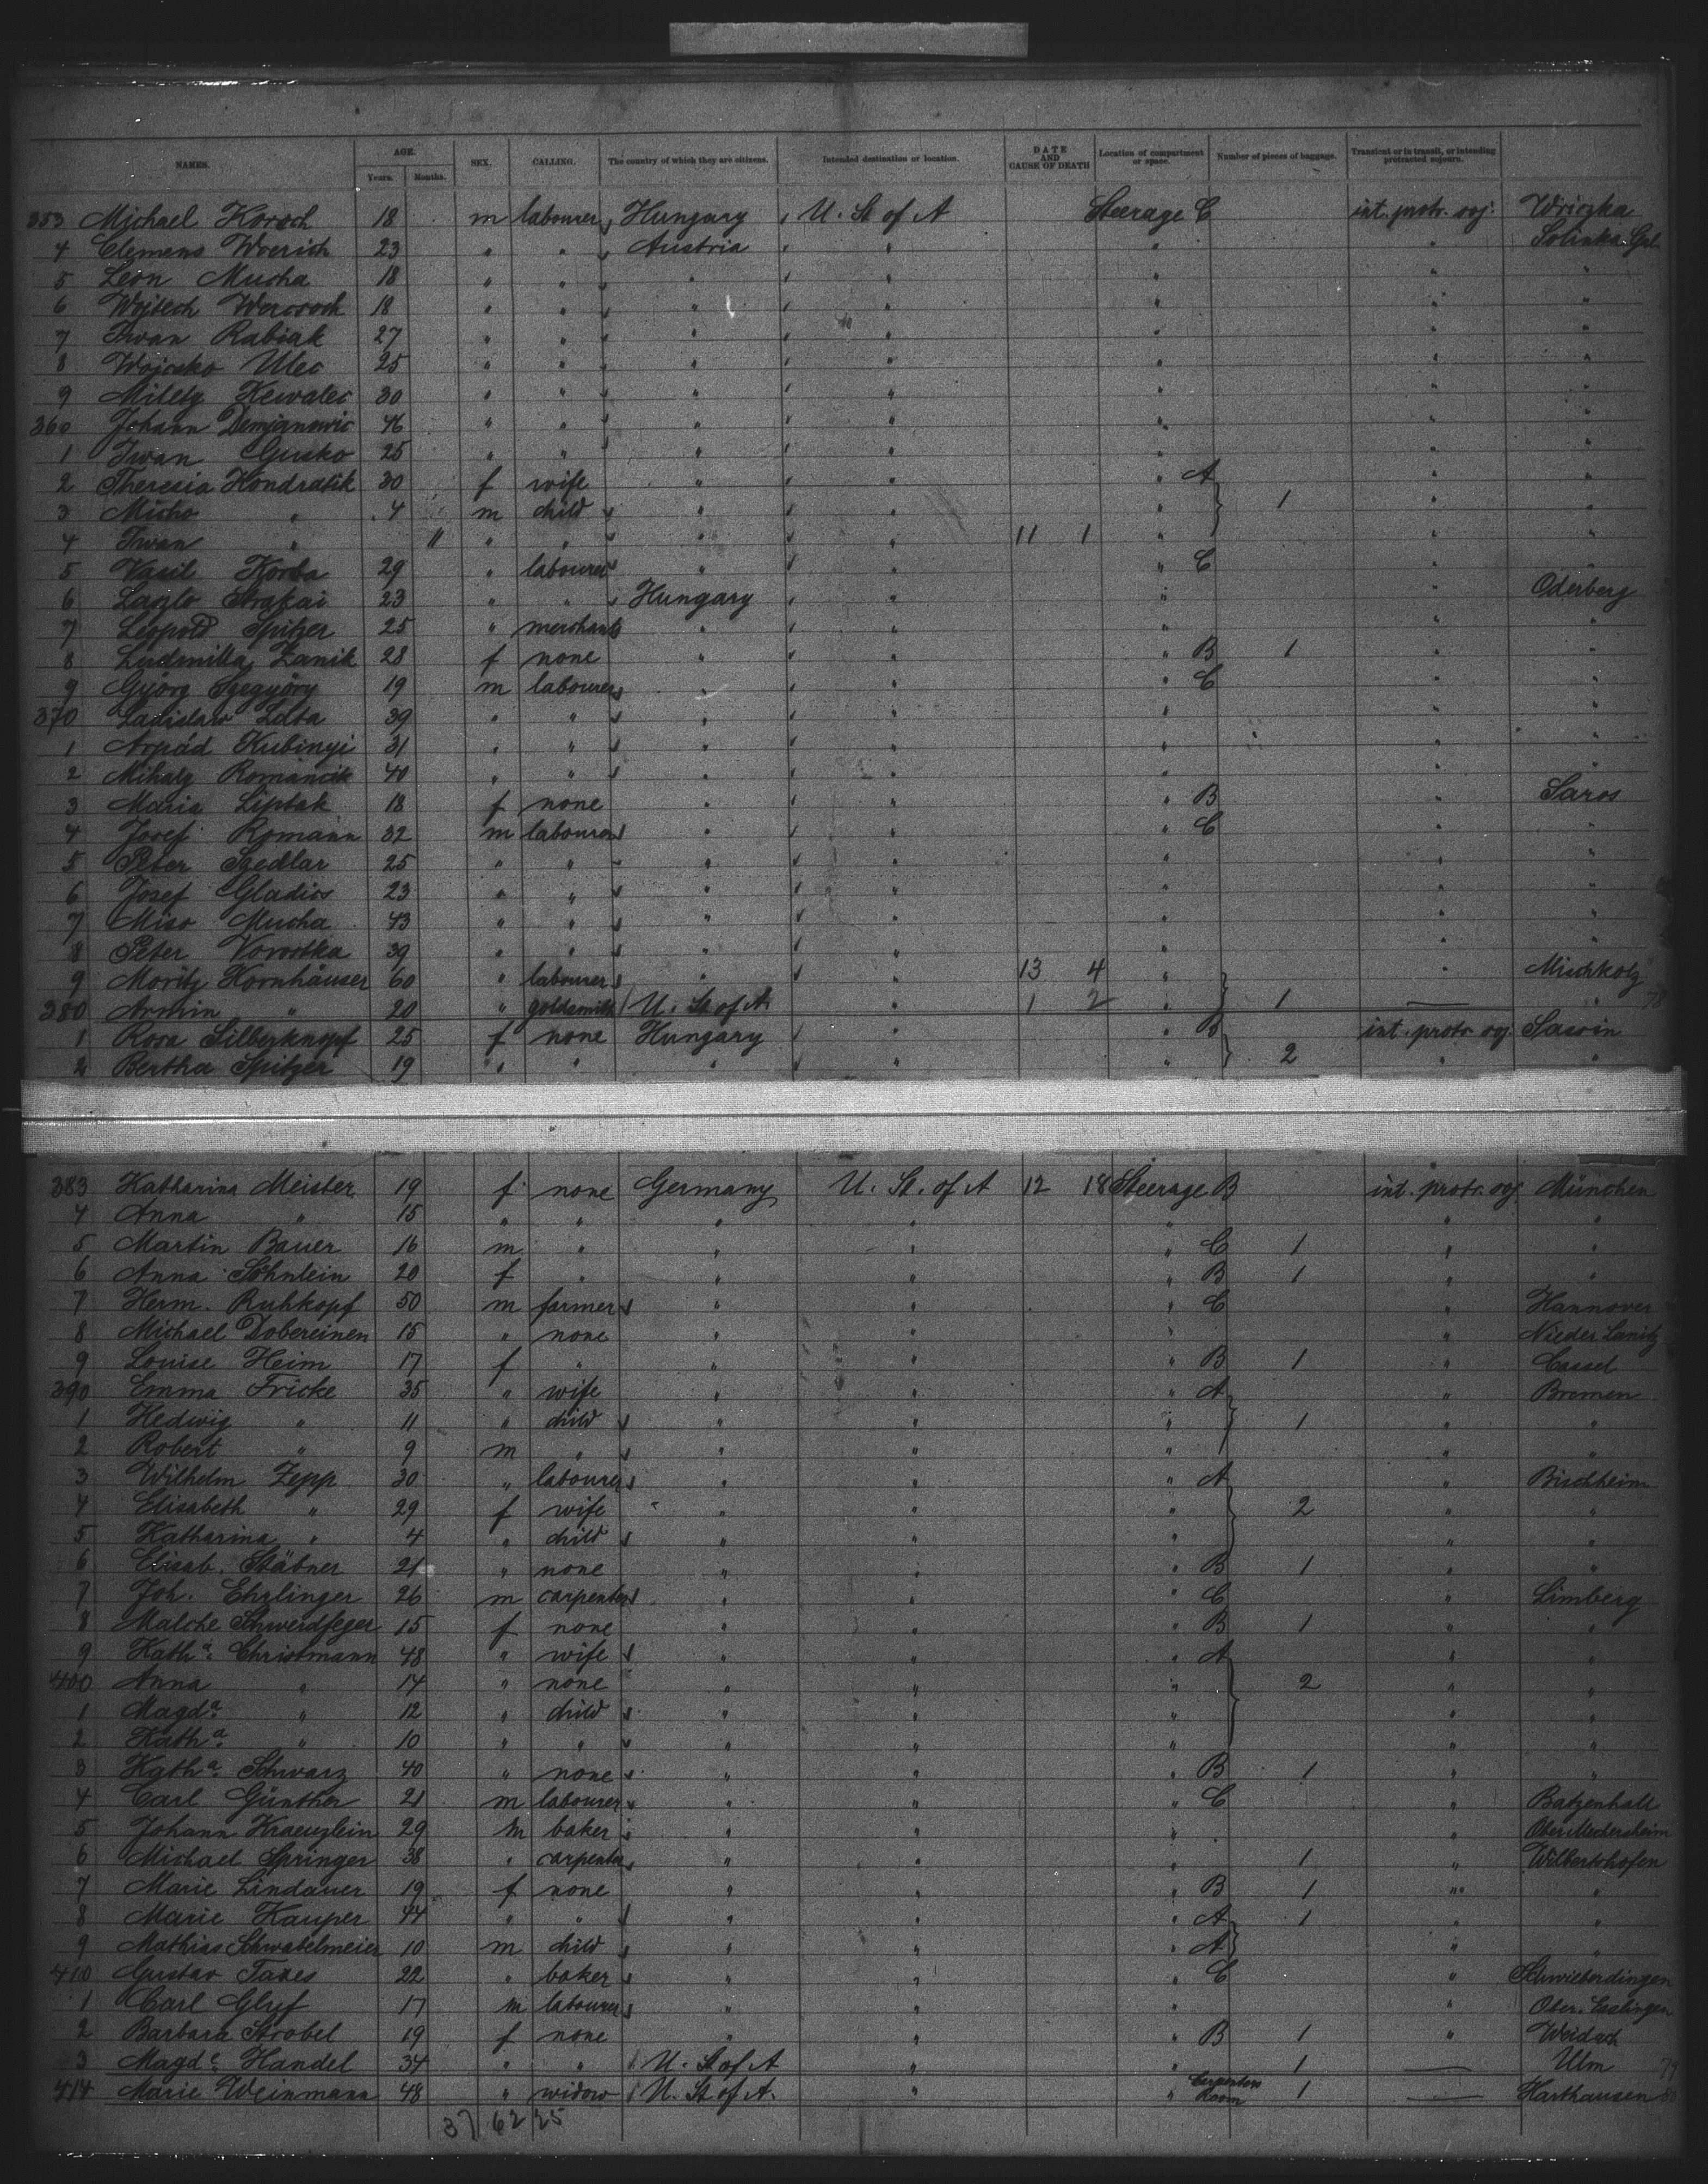 NAMES. AGE. Years. Months. SEX. CALLING. The country of which they are citizens. Intended destination or location. DATE AND CAUSE OF DEATH Location of compartment or space. Number of pieces of baggage. Transient or in transit, or intending protracted sojourn.
353 Michael Korsch 18 m labourer Hungary U. St of A Steerage C int. protr. soj.
4 Clemens 23 " " Austria " " " Solinka Gal.
5 Leon Mucha 18 " " " " " " "
6 Wojtech 18 " " " " " " "
7 Iwan Rabiak 27 " " " " " " "
8 Wojcsko Ulec 25 " " " " " " "
9 Milety Kewalec 30 " " " " " " "
360 Johann Demjanowic 46 " " " " " " "
1 Iwan Gusko 25 " " " " " " "
2 Theresia Kondratik 30 f wife " " " A 1 " "
3 Misho " 4 m child " " " " "
4 Iwan " 11 " " " " 11 1 " " "
5 Vasil Korba 29 " labourer " " " C " "
6 Laszlo 23 " " Hungary " " " Oderberg
7 Leopold Spitzer 25 " merchant " " " " "
8 Ludmilla Zanik 28 f none " " " B 1 " "
9 Györg Szegyöry 19 m labourer " " " C " "
370 Ladislaw 39 " " " " " " "
1 Arpád Kubinyi 31 " " " " " " "
2 Mihaly Romancik 40 " " " " " " "
3 Maria Liptak 18 f none " " " B " Saros
4 Josef Romann 32 m labourer " " " C " "
5 Peter Szedlar 25 " " " " " " "
6 Josef Gladics 23 " " " " " " "
7 Miso Mucha 43 " " " " " " "
8 Peter Vorostka 39 " " " " " " "
9 Moritz Kornhäuser 60 " labourer " " 13 4 " " Mischkolz
380 Armin " 20 " goldsmith U. St of A " 1 2 " 1 — " 78
1 Rosa Silberknopf 25 f none Hungary " " B int. protr. soj Sassin
2 Bertha Spitzer 19 " " " " " 2 " "
383 Katharina Meister 19 f none Germany U. St. of A 12 18 Steerage B int. protr. soj München
4 Anna " 15 " " " " " " "
5 Martin Bauer 16 m " " " " C 1 " "
6 Anna Söhnlein 20 f " " " " B 1 " "
7 Herm. Ruhkopf 50 m farmer " " " C " Hannover
8 Michael Dobereinen 15 " none " " " "
9 Louise Heim 17 f " " " " B 1 " Cassel
390 Emma Fricke 35 " wife " " " A " Bremen
1 Hedwig " 11 " child " " " 1 " "
2 Robert " 9 m " " " " " "
3 Wilhelm Zepp 30 " labourer " " " A " Bischheim
4 Elisabeth " 29 f wife " " " 2 " "
5 Katharina " 4 " child " " " " "
6 Elisab. Stäbner 21 " none " " " B 1 " "
7 Joh. Ehrlinger 26 m carpenter " " " C " Limberg
8 Malche Schwerdfeger 15 f none " " " B 1 " "
9 Kath.a Christmann 48 " wife " " " A " "
400 Anna " 14 " none " " " 2 " "
1 Magd.a " 12 " child " " " " "
2 Kath.a " 10 " " " " " " "
3 Kath.a Schwarz 40 " none " " " B 1 " "
4 Carl Günther 21 m labourer " " " C " Batzenhall
5 Johann Kraenzlein 29 m baker " " " "
6 Michael Springer 38 " carpenter " " " 1 " Wilbertshofen
7 Marie Lindauer 19 f none " " " B 1 " "
8 Marie Kauper 44 " " " " " A 1 " "
9 Mathias Schwabelmeier 10 m child " " " A " "
410 Gustav Taxes 22 " baker " " " C " Schwieberdingen
1 Carl Glyf 17 m labourer " " " " Ober. Esslingen
2 Barbara Strobel 19 f none " " " B 1 " Weidach
3 Magd.a Handel 34 " " U. St of A " " 1 — Ulm 79
414 Marie Weinmann 48 " widow U. St of A. " " Carpenters Room 1 — Harthausen
37 62 25